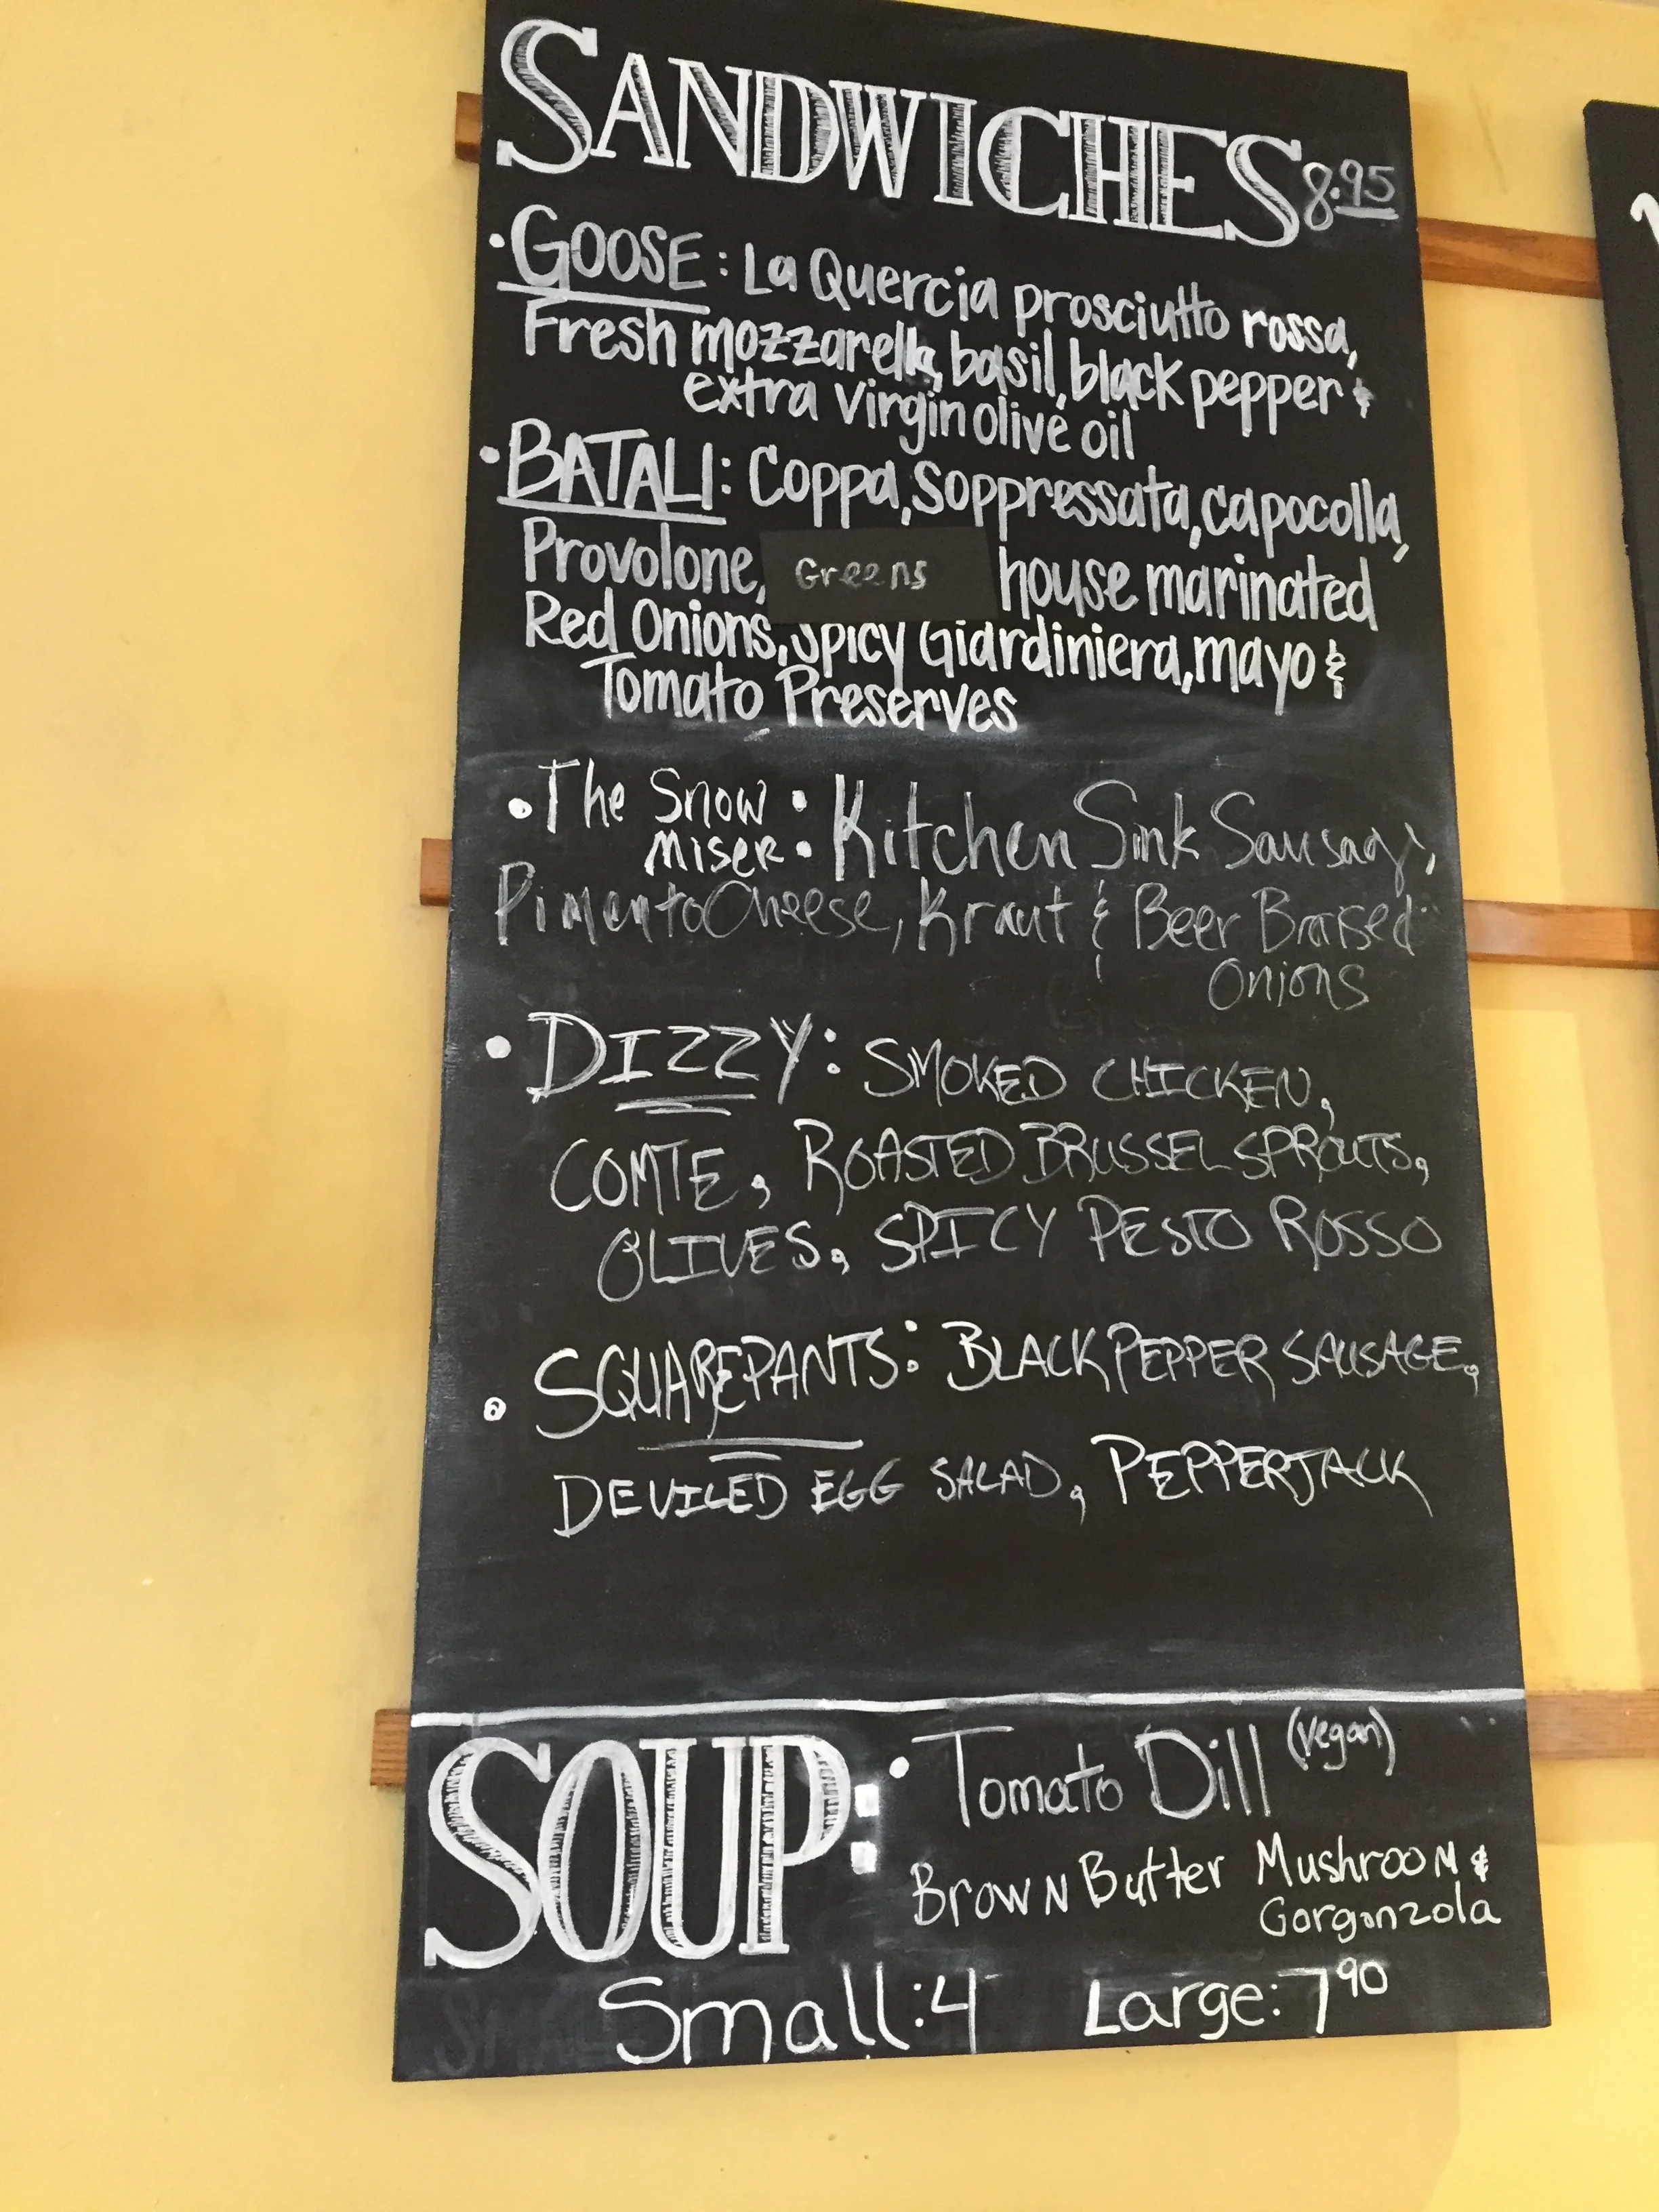 SANDWICHES 8.95
• GOOSE: La Quercia prosciutto rossa,
Fresh mozzarella, basil, black pepper &
extra virgin olive oil
• BATALI: Coppa, Soppressata, capocolla,
Provolone, Greens house marinated
Red Onions, Spicy Giardiniera, mayo &
Tomato Preserves
• The Snow Miser: Kitchen Sink Sausage,
Pimento Cheese, Kraut & Beer Braised
Onions
• DIZZY: SMOKED CHICKEN,
COMTE, ROASTED BRUSSEL SPROUTS,
OLIVES, SPICY PESTO ROSSO
• SQUAREPANTS: BLACK PEPPER SAUSAGE,
DEVILED EGG SALAD, PEPPERJACK
SOUP: • Tomato Dill (vegan)
Brown Butter Mushroom &
Gorgonzola
Small: 4 Large: 7 90